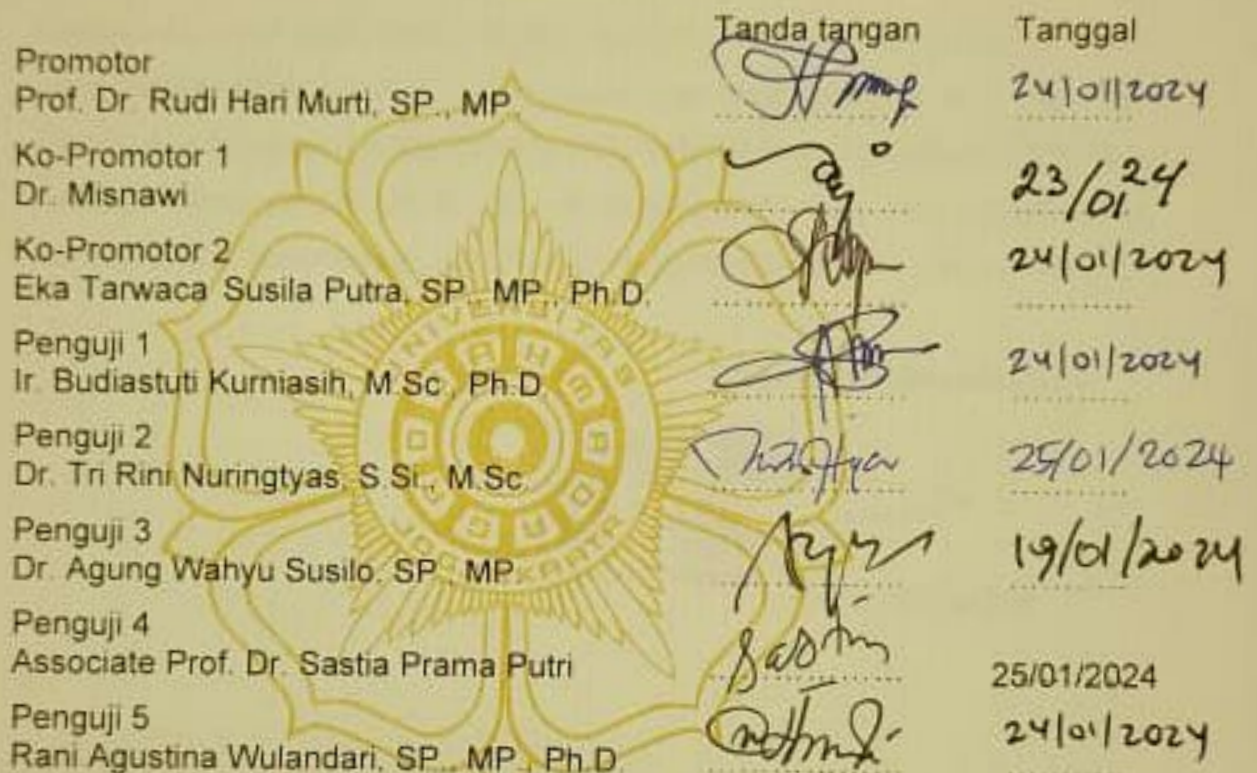 Tanda tangan Tanggal
Promotor
Prof. Dr. Rudi Hari Murti, SP., MP. 24/01/2024
Ko-Promotor 1
Dr. Misnawi 23/01 24
Ko-Promotor 2
Eka Tarwaca Susila Putra, SP., MP., Ph.D. 24/01/2024
Penguji 1
Ir. Budiastuti Kurniasih, M.Sc., Ph.D. 24/01/2024
Penguji 2
Dr. Tri Rini Nuringtyas, S.Si., M.Sc. 25/01/2024
Penguji 3
Dr. Agung Wahyu Susilo, SP., MP. 19/01/2024
Penguji 4
Associate Prof. Dr. Sastia Prama Putri 25/01/2024
Penguji 5
Rani Agustina Wulandari, SP., MP., Ph.D. 24/01/2024
UNIVERSITAS
GADJAH MADA